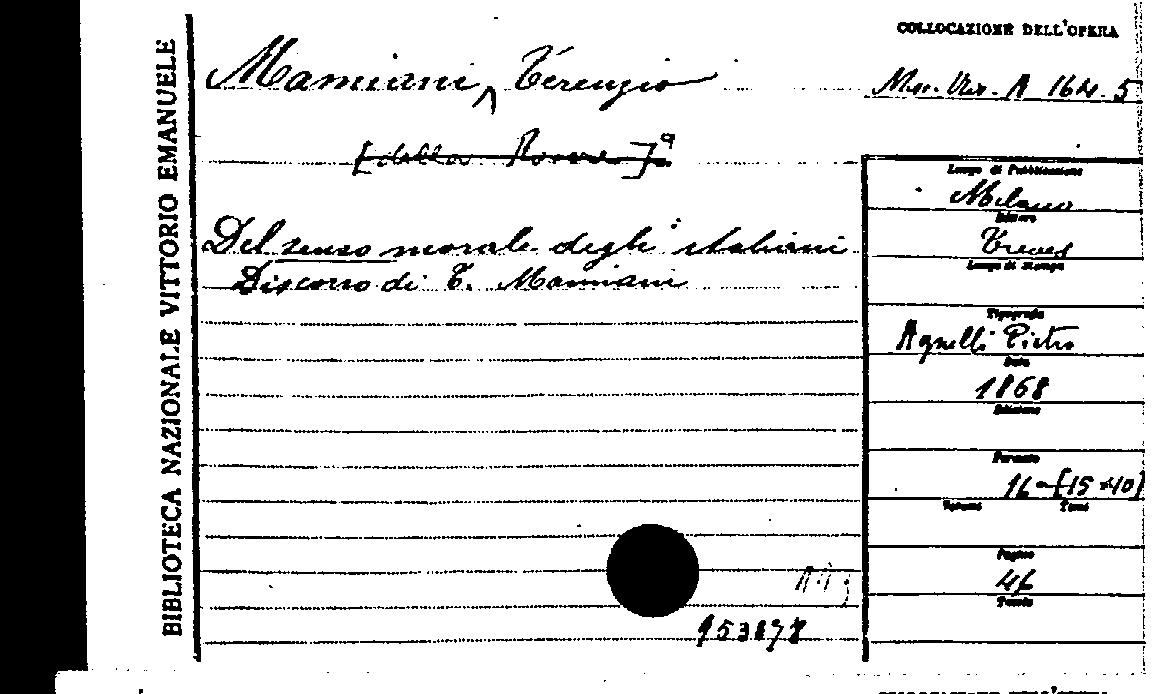 BIBLIOTECA NAZIONALE VITTORIO EMANUELE
COLLOCAZIONE DELL'OPERA
Mamiani, Terenzio
Misc. Var. A 164. 5
[della Rovere]
Luogo di Pubblicazione
Milano
Editore
Del senso morale degli italiani
Treves
Luogo di Stampa
Discorso di T. Mamiani
Tipografia
Agnelli Pietro
Data
1868
Edizione
Formato
16 - [15×10]
Volumi Tomi
Pagine
46
Tavole